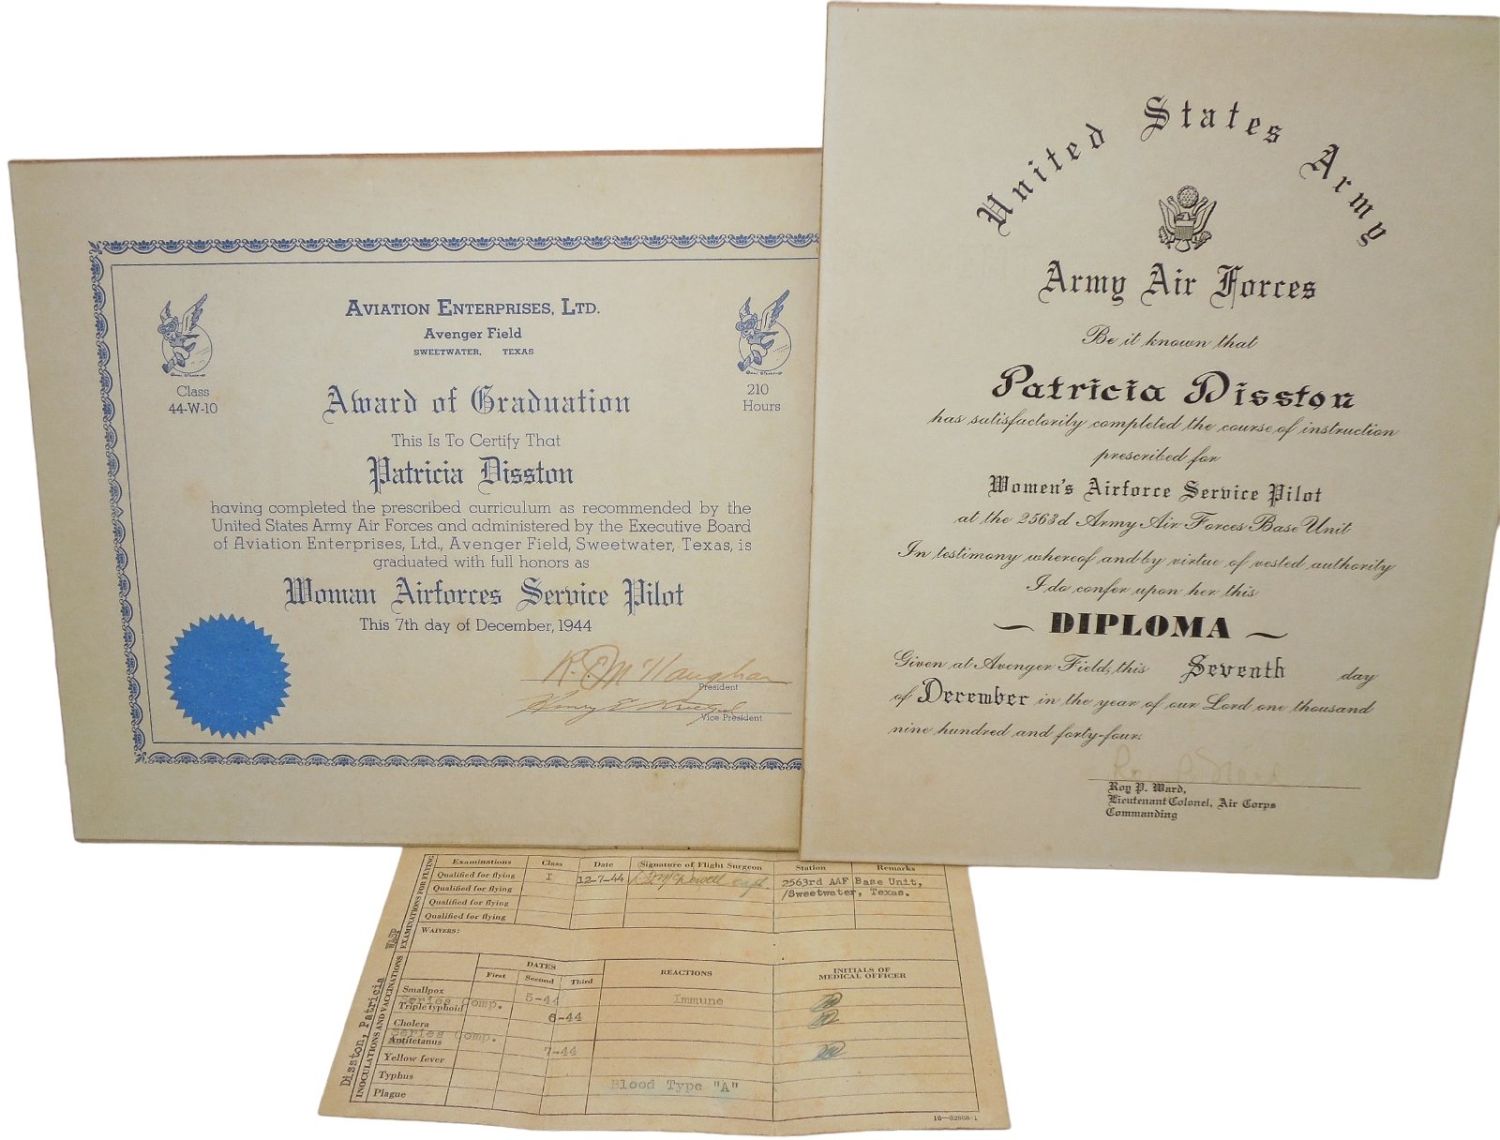 Aviation Enterprises, Ltd.
Avenger Field
Sweetwater, Texas
Class
44-W-10
210
Hours
Award of Graduation
This Is To Certify That
Patricia Disston
having completed the prescribed curriculum as recommended by the
United States Army Air Forces and administered by the Executive Board
of Aviation Enterprises, Ltd., Avenger Field, Sweetwater, Texas, is
graduated with full honors as
Woman Airforces Service Pilot
This 7th day of December, 1944
President
Vice President
United States Army
Army Air Forces
Be it known that
Patricia Disston
has satisfactorily completed the course of instruction
prescribed for
Women's Airforce Service Pilot
at the 2563d Army Air Forces Base Unit
In testimony whereof and by virtue of vested authority
I do confer upon her this
DIPLOMA
Given at Avenger Field, this Seventh day
of December in the year of our Lord one thousand
nine hundred and forty-four.
Roy P. Ward,
Lieutenant Colonel, Air Corps
Commanding
Examinations Class Date Signature of Flight Surgeon Station Remarks
Qualified for flying I 12-7-44 2563rd AAF Base Unit,
Qualified for flying /Sweetwater, Texas.
Qualified for flying
Qualified for flying
Waivers:
EXAMINATIONS FOR FLYING
WASP
Disston, Patricia
INOCULATIONS AND VACCINATIONS
DATES
First Second Third
REACTIONS
INITIALS OF
MEDICAL OFFICER
Smallpox 5-44 Immune
Series Comp.
Triple typhoid 6-44
Cholera
Series Comp.
Antitetanus 7-44
Yellow fever
Typhus Blood Type "A"
Plague